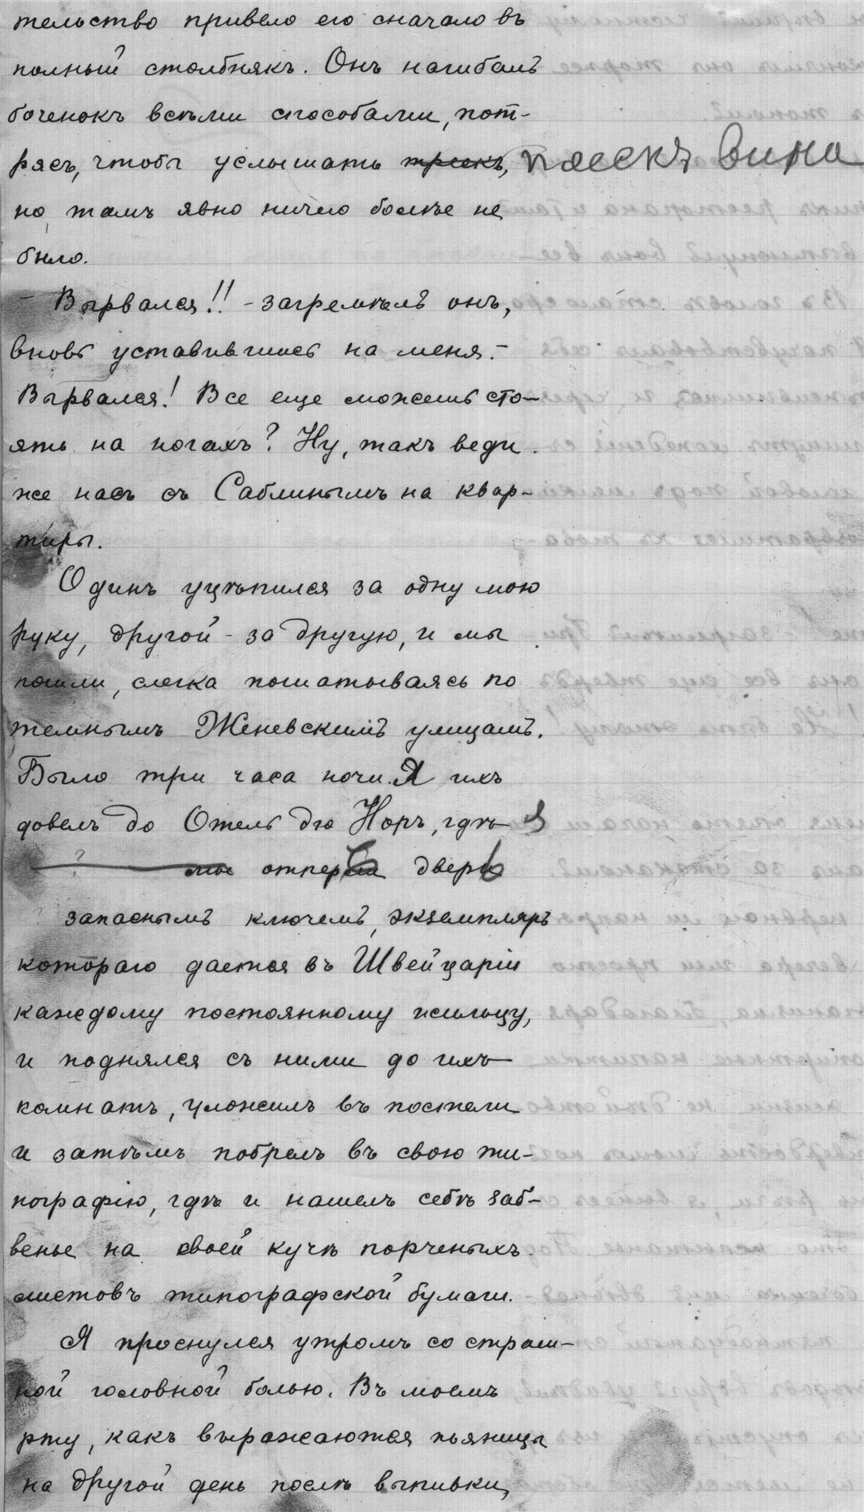 тельство привело его сначало въ
полный столбнякъ. Онъ нагибалъ
боченокъ всѣми способами, пот-
рясъ, чтобы услышать трескъ, плескъ вина
но тамъ явно ничего болѣе не
было.
– Вырвался!! – загремѣлъ онъ,
вновь уставившись на меня. –
Вырвался! Все еще можешь сто-
ять на ногахъ? Ну, такъ веди
же насъ съ Саблинымъ на квар-
тиры.
Одинъ уцѣпился за одну мою
руку, другой – за другую, и мы
пошли, слегка пошатываясь по
темнымъ Женевскимъ улицамъ.
Было три часа ночи. Я ихъ
довелъ до Отель дю Норъ, гдѣ я
отперъ дверь
запаснымъ ключемъ, экземпляръ
котораго дается въ Швейцаріи
каждому постоянному жильцу,
и поднялся съ ними до ихъ
комнатъ, уложилъ въ постели
и затѣмъ побрелъ въ свою ти-
пографію, гдѣ и нашелъ себѣ заб-
венье на своей кучѣ порченыхъ
листовъ типографской бумаги.
Я проснулся утромъ со страш-
ной головной болью. Въ моемъ
рту, какъ выражаются пьяницы
на другой день послѣ выпивки,